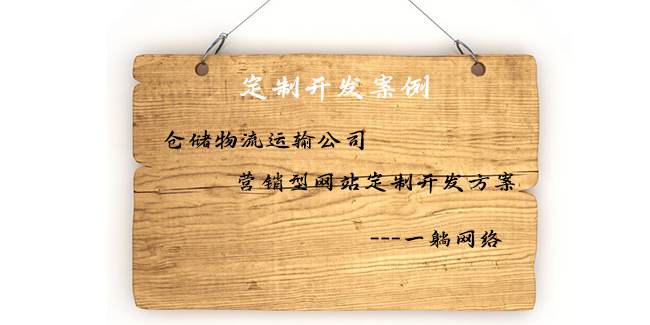 定制开发案例
仓储物流运输公司
营销型网站定制开发方案
---一躺网络